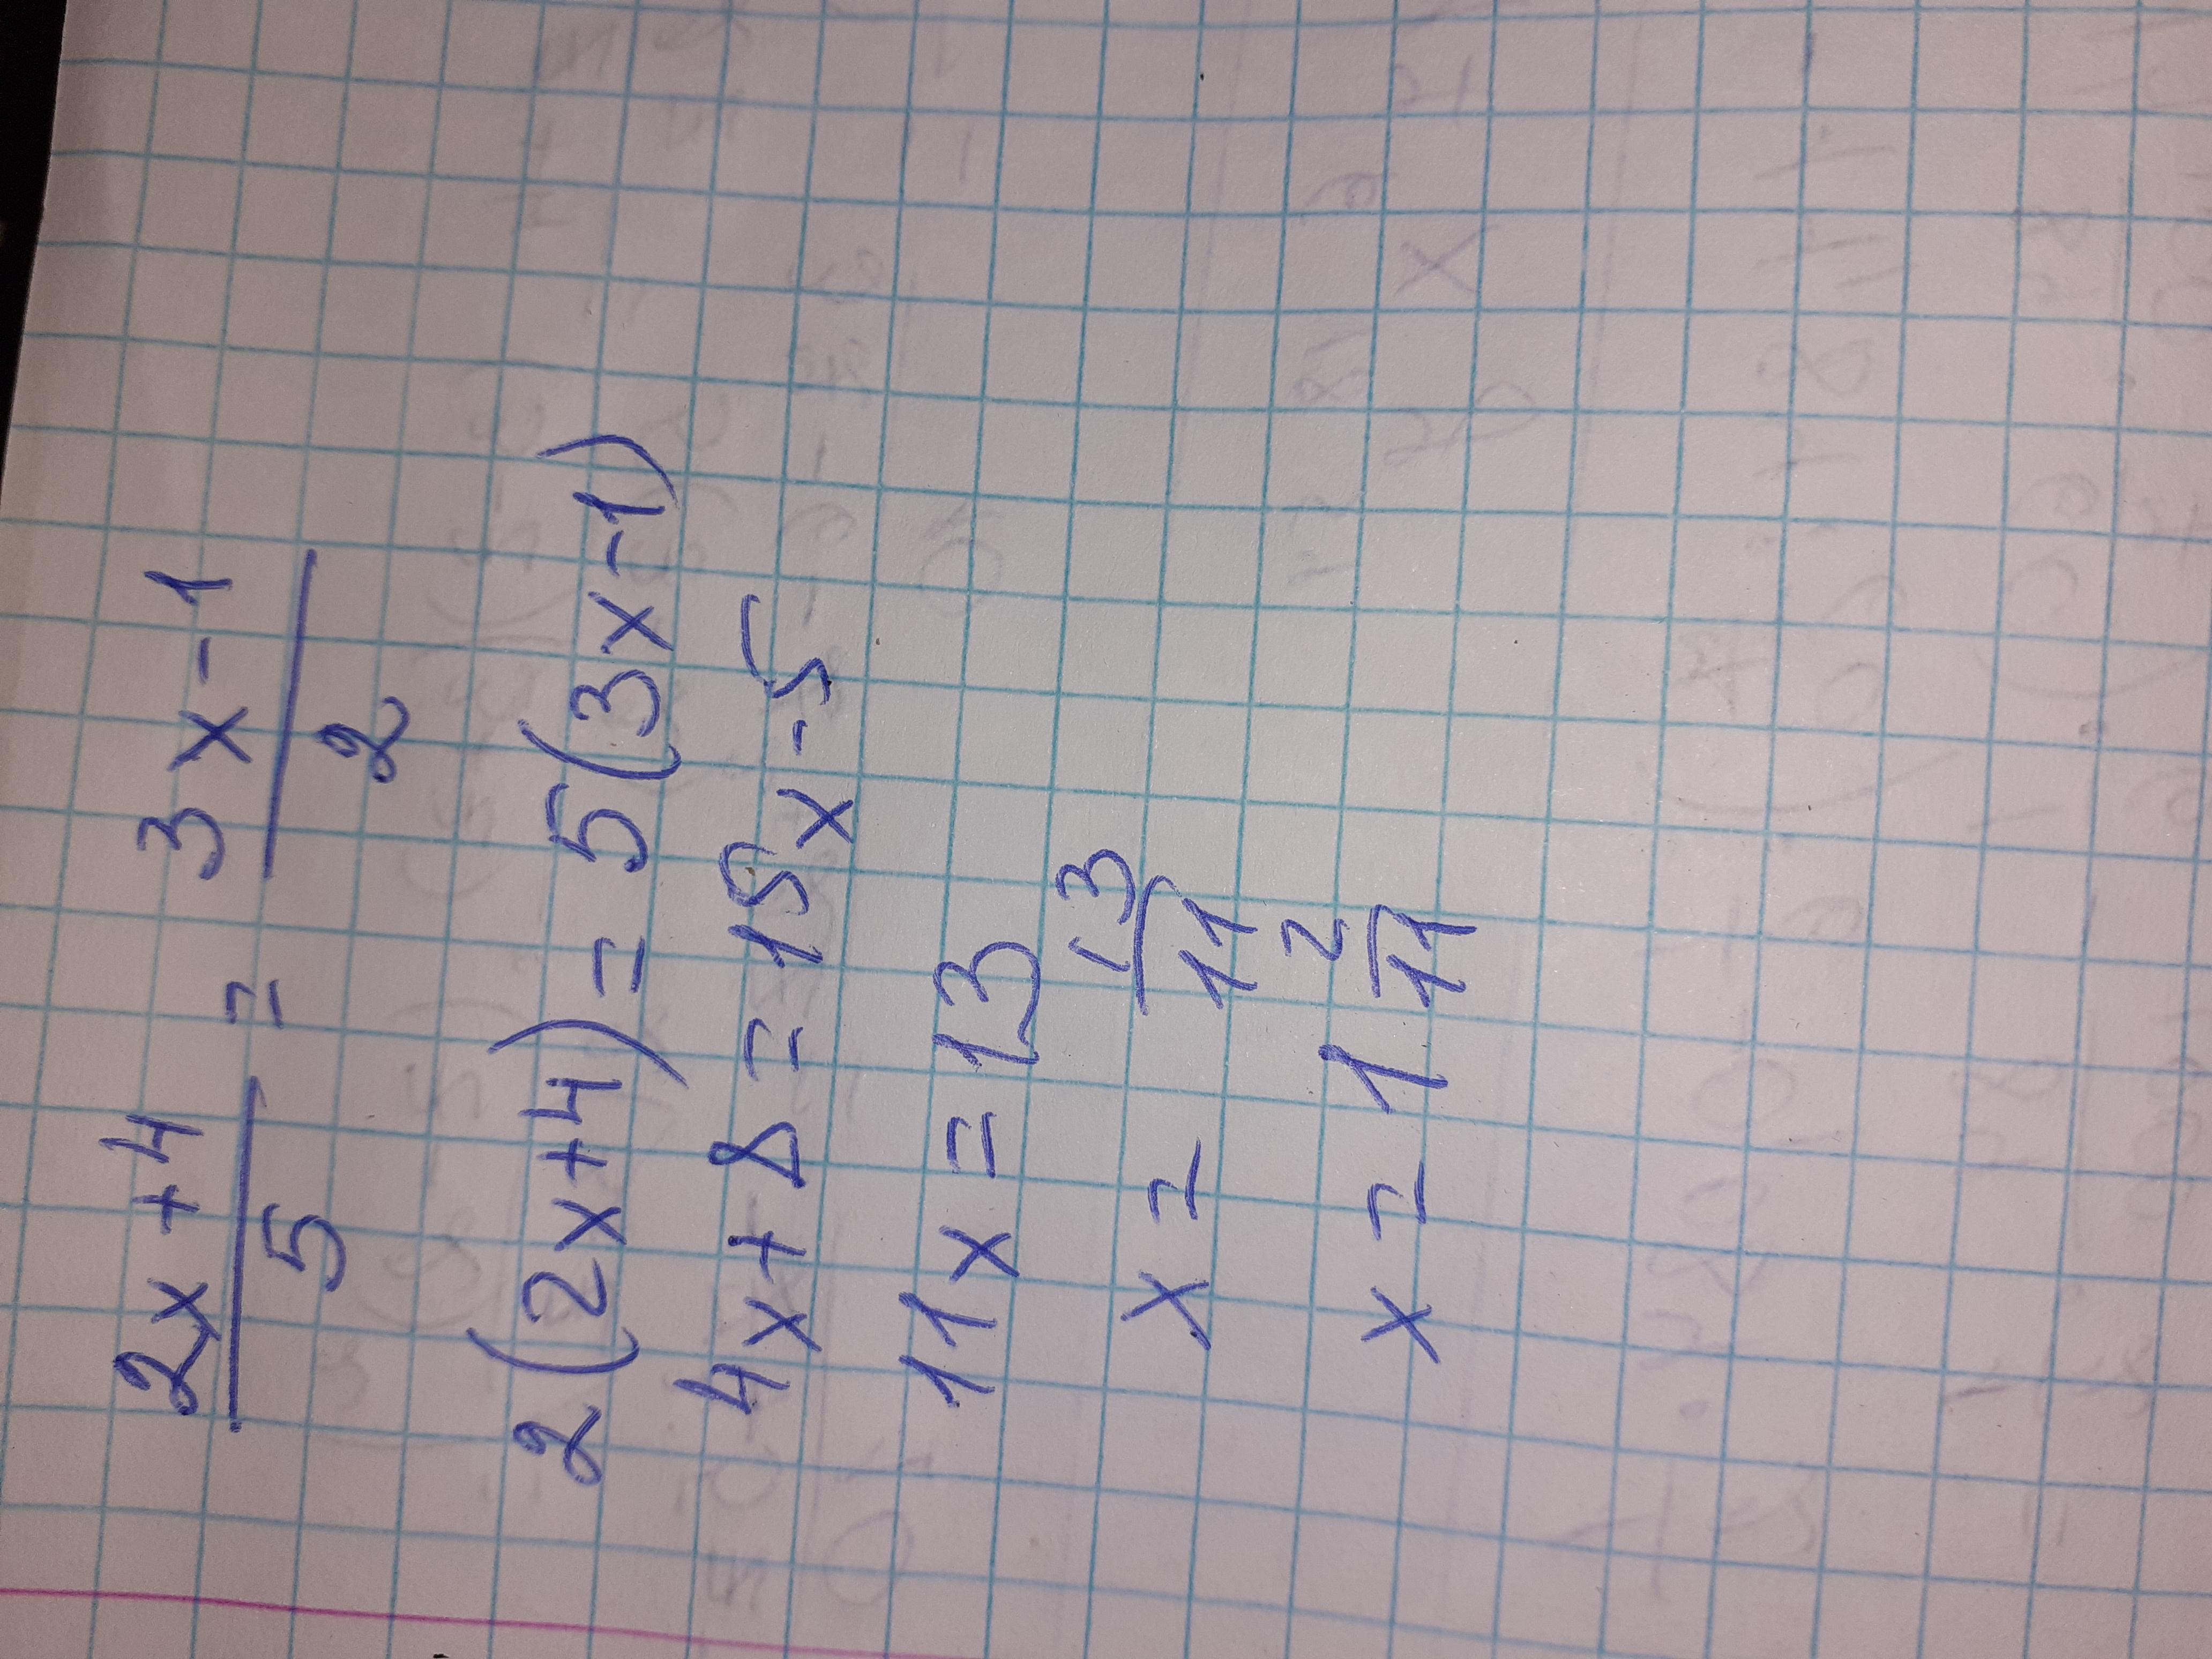 2x+4/5 = 3x-1/2
2(2x+4)=5(3x-1)
4x+8=15x-5
11x=13
x=13/11
x=1 2/11